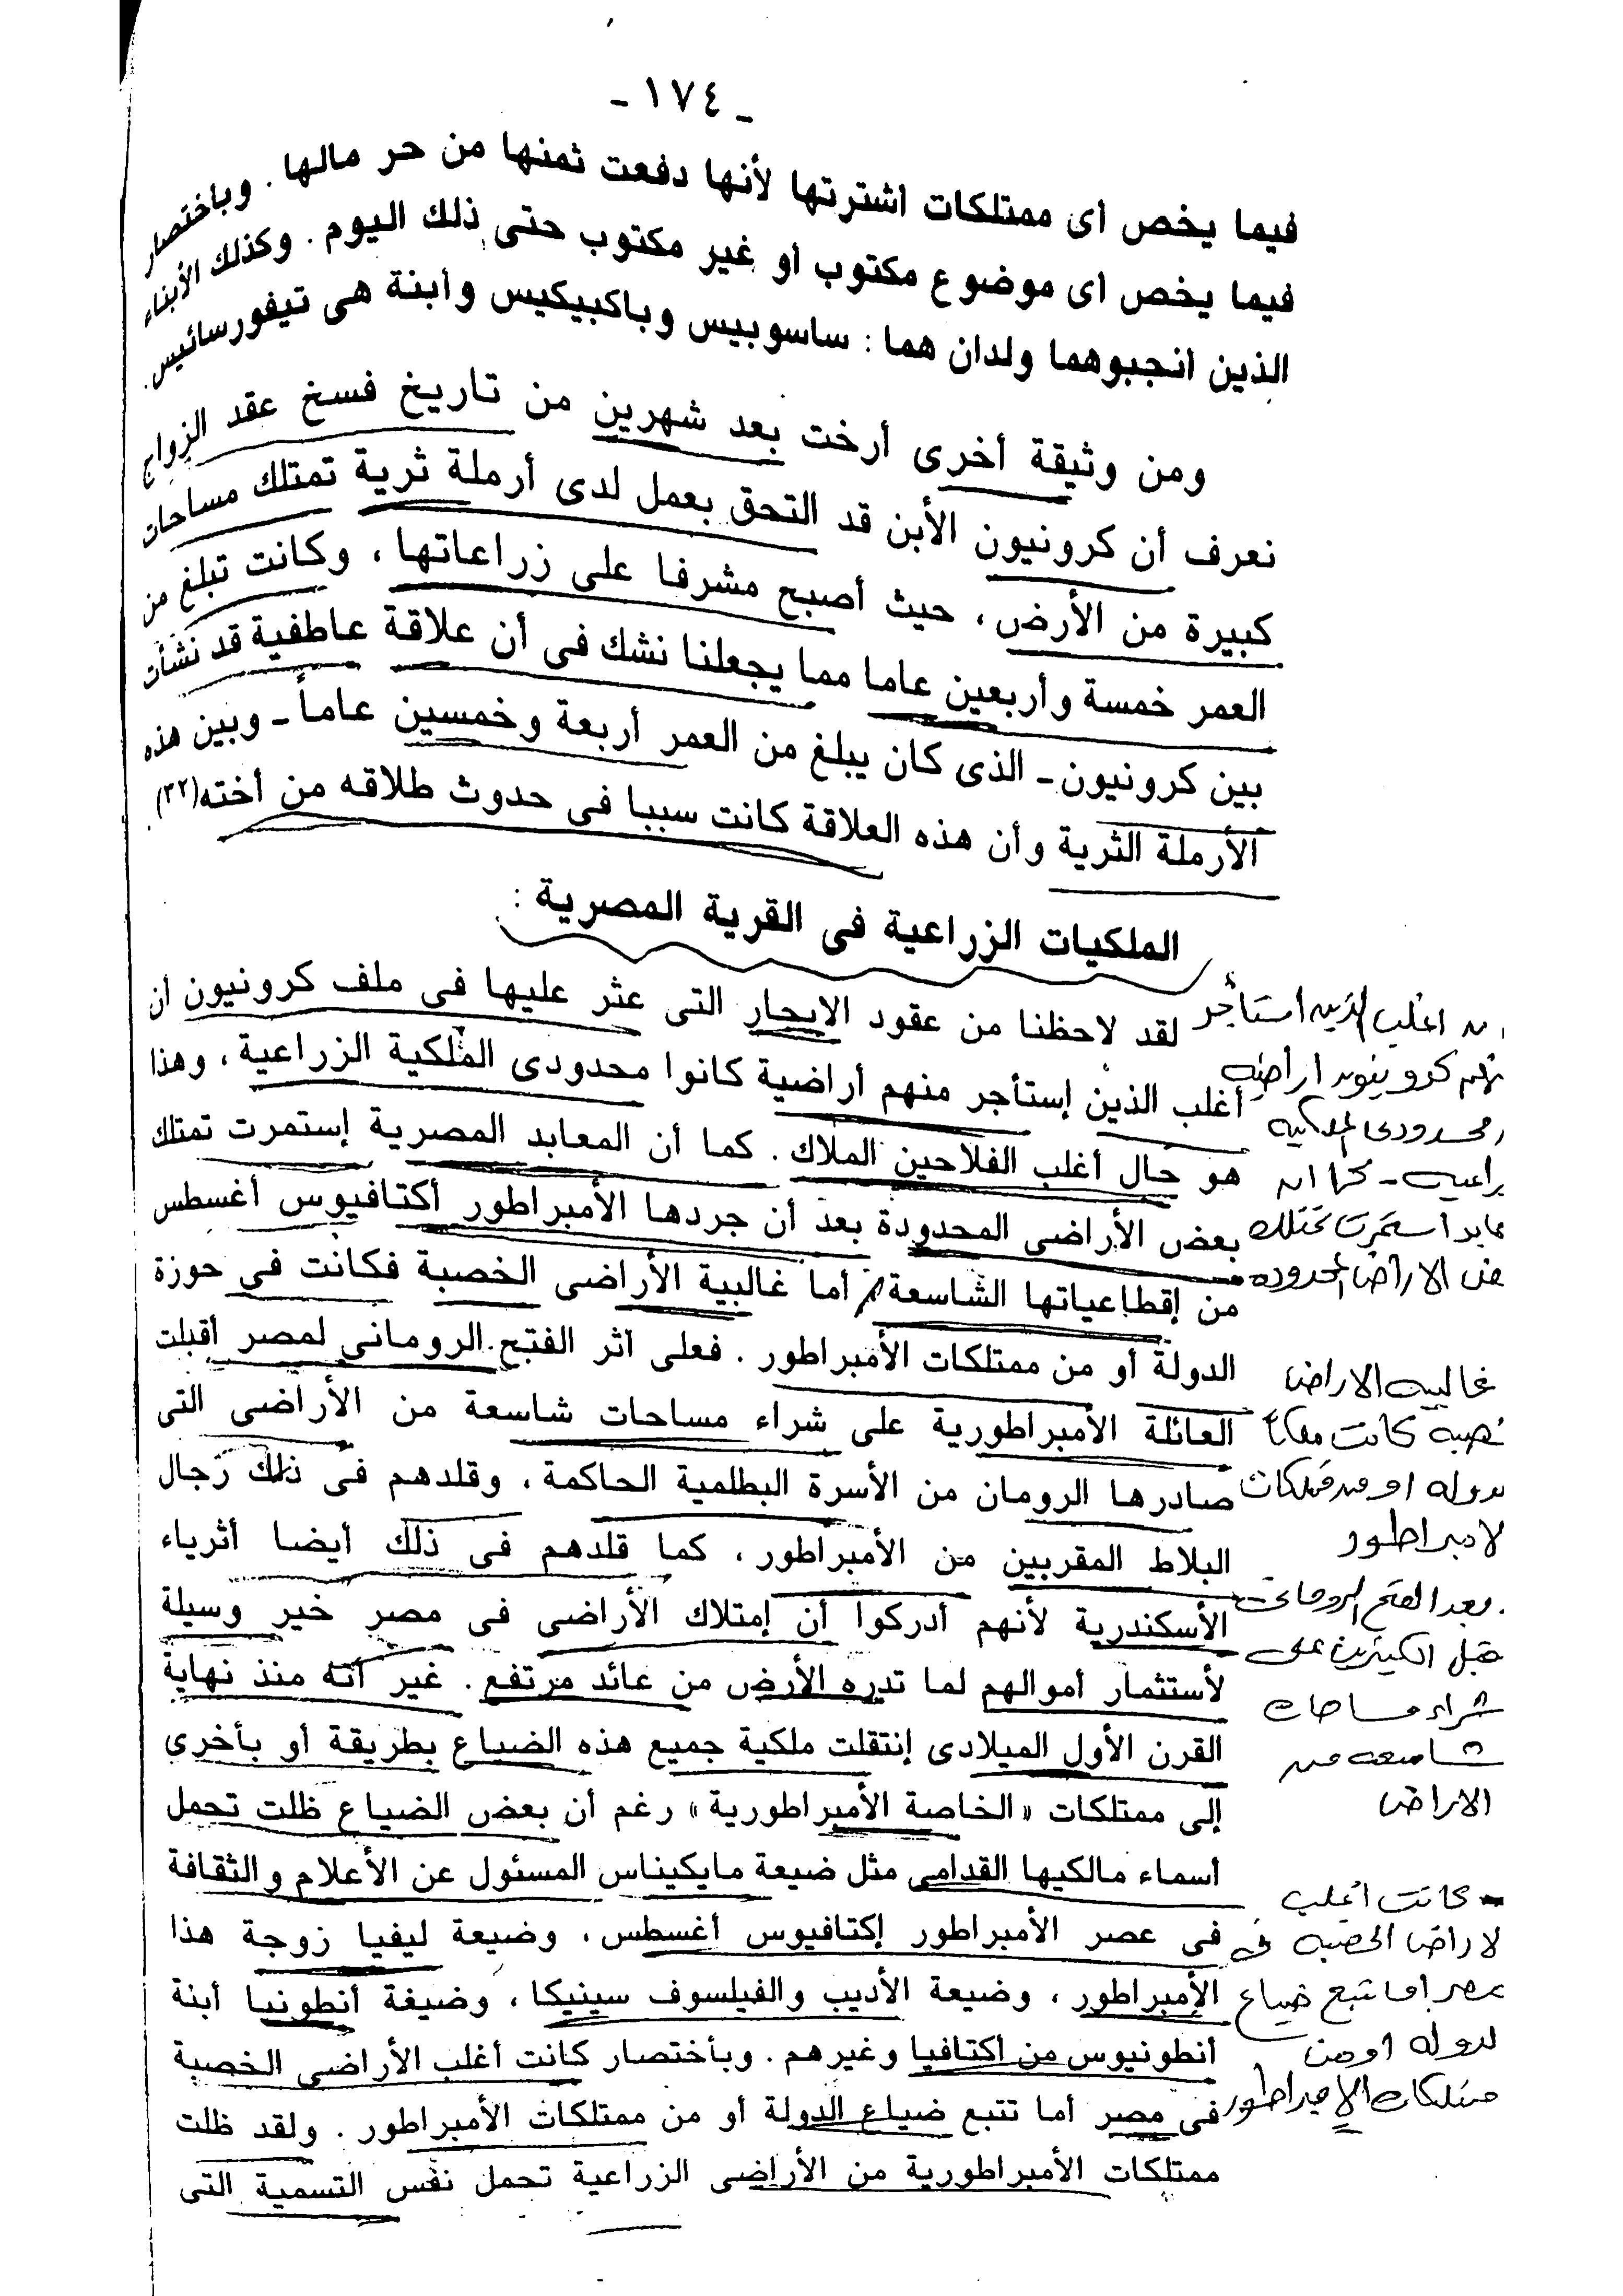 ـ ١٧٤ -
فيما يخص أى ممتلكات اشترتها لأنها دفعت ثمنها من حر مالها . وباختصار
فيما يخص أى موضوع مكتوب أو غير مكتوب حتى ذلك اليوم . وكذلك الأبناء
الذين أنجبوهما ولدان هما : ساسوبيس وباكبيكيس وأبنة هى تيفورسائيس.
ومن وثيقة أخرى أرخت بعد شهرين من تاريخ فسخ عقد الزواج
نعرف أن كرونيون الأبن قد التحق بعمل لدى أرملة ثرية تمتلك مساحات
كبيرة من الأرض ، حيث أصبح مشرفا على زراعاتها ، وكانت تبلغ من
العمر خمسة وأربعين عاما مما يجعلنا نشك فى أن علاقة عاطفية قد نشأت
بين كرونيون ـ الذى كان يبلغ من العمر أربعة وخمسين عاماً ـ وبين هذه
الأرملة الثرية وأن هذه العلاقة كانت سببا فى حدوث طلاقه من أخته(٣٢) .
الملكيات الزراعية فى القرية المصرية :
لقد لاحظنا من عقود الايجار التى عثر عليها فى ملف كرونيون أن
أغلب الذين إستأجر منهم أراضية كانوا محدودى الملكية الزراعية ، وهذا
هو حال أغلب الفلاحين الملاك . كما أن المعابد المصرية إستمرت تمتلك
بعض الأراضى المحدودة بعد أن جردها الأمبراطور أكتافيوس أغسطس
من إقطاعياتها الشاسعة أما غالبية الأراضى الخصبة فكانت فى حوزة
الدولة أو من ممتلكات الأمبراطور . فعلى أثر الفتح الرومانى لمصر أقبلت
العائلة الأمبراطورية على شراء مساحات شاسعة من الأراضى التى
صادرها الرومان من الأسرة البطلمية الحاكمة ، وقلدهم فى ذلك رجال
البلاط المقربين من الأمبراطور ، كما قلدهم فى ذلك أيضا أثرياء
الأسكندرية لأنهم أدركوا أن إمتلاك الأراضى فى مصر خير وسيلة
لأستثمار أموالهم لما تدره الأرض من عائد مرتفع . غير أنه منذ نهاية
القرن الأول الميلادى إنتقلت ملكية جميع هذه الضياع بطريقة أو بأخرى
إلى ممتلكات «الخاصة الأمبراطورية» رغم أن بعض الضياع ظلت تحمل
أسماء مالكيها القدامى مثل ضيعة مايكيناس المسئول عن الأعلام والثقافة
فى عصر الأمبراطور إكتافيوس أغسطس ، وضيعة ليفيا زوجة هذا
الإمبراطور ، وضيعة الأديب والفيلسوف سينيكا ، وضيعة أنطونيا أبنة
أنطونيوس من أكتافيا وغيرهم . وبأختصار كانت أغلب الأراضى الخصبة
فى مصر أما تتبع ضياع الدولة أو من ممتلكات الأمبراطور . ولقد ظلت
ممتلكات الأمبراطورية من الأراضى الزراعية تحمل نفس التسمية التى
اغلب الذين استأجر
كرونيون اراضيه
محدودى الملكيه
كما ان
استمرت تمتلك
الاراضى المحدوده
غالبيه الاراضى
كانت ملكاً
او من ممتلكات
لامبراطور
بعد الفتح الرومانى
الكثيرين على
شراء مساحات
شاسعه من
الاراضى
- كانت اغلب
لاراضى الخصبه فى
مصر اما تتبع ضياع
لدوله او من
ممتلكات الإمبراطور